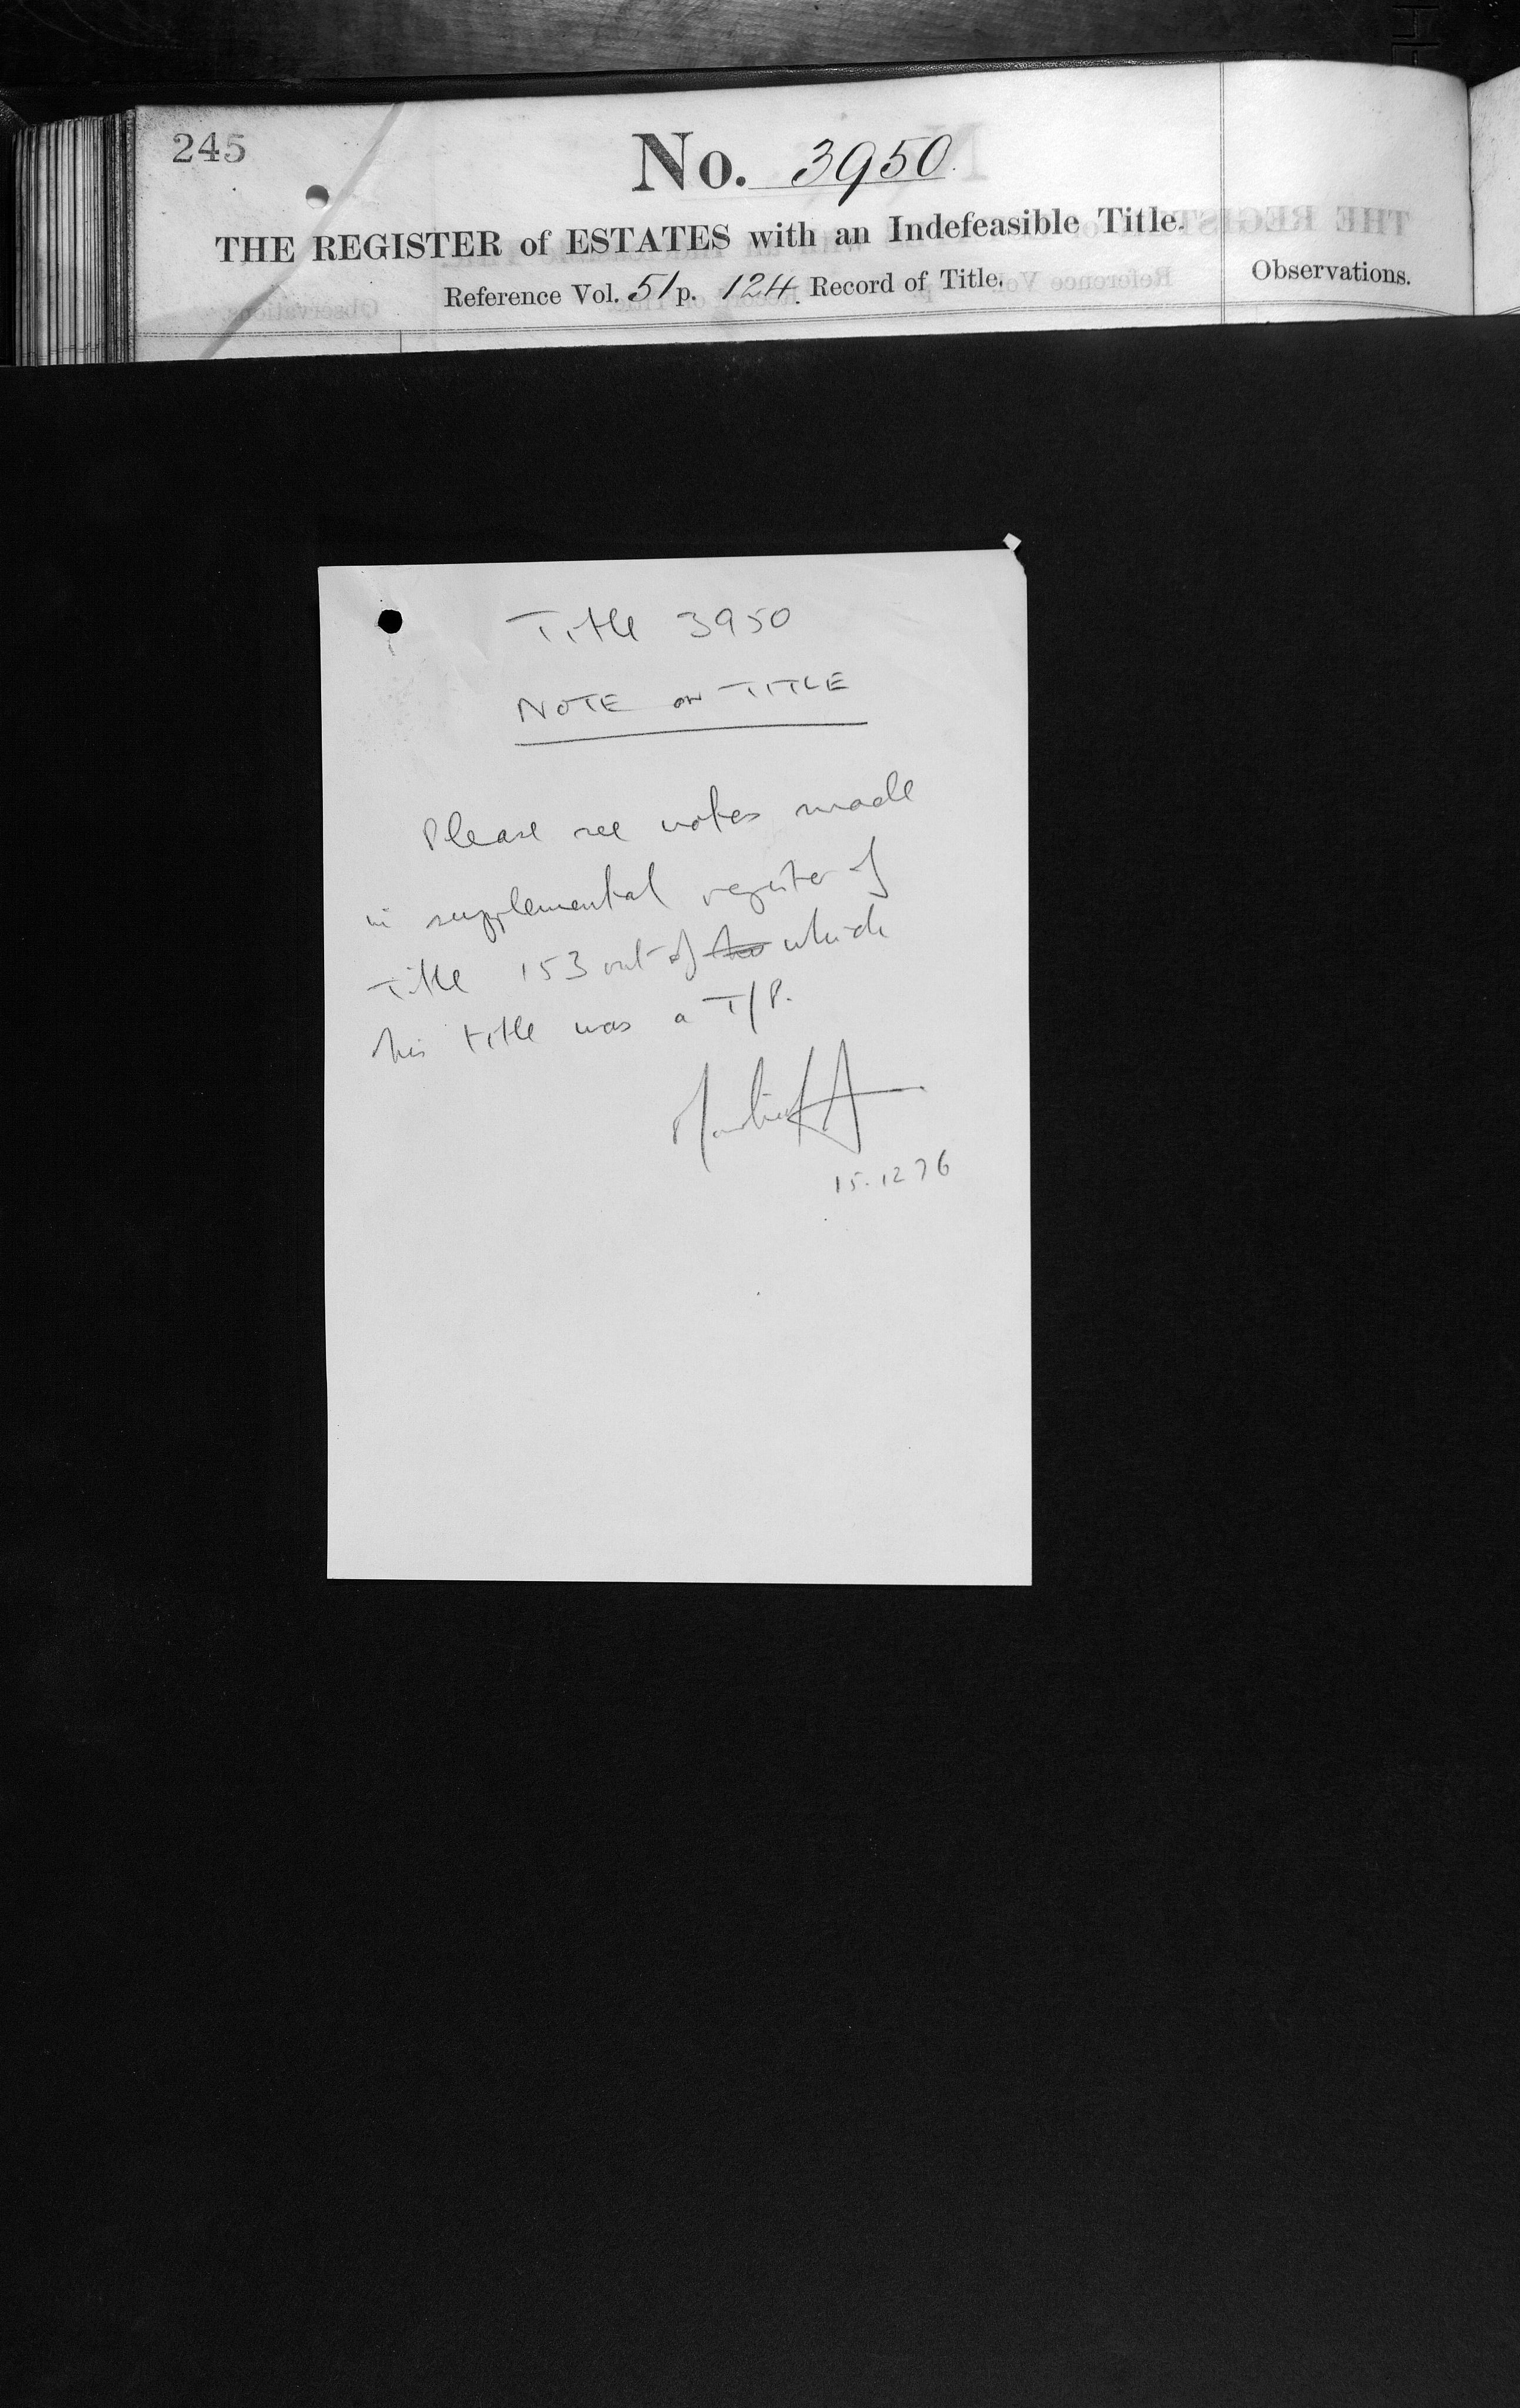 245
No. 3950.
THE REGISTER of ESTATES with an Indefeasible Title.
Reference Vol. 51 p. 124. Record of Title.
Observations.
Title 3950
NOTE on TITLE
Please see notes made
in supplemental register of
Title 153 out of which
this title was a T/P.
15.12 76